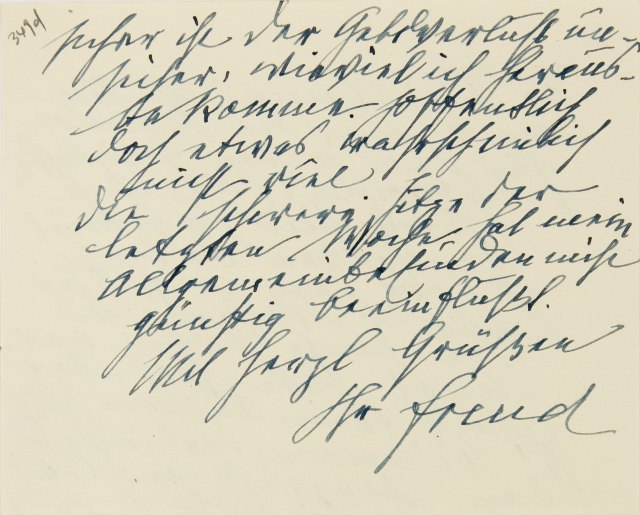 349d
sicher ist der Geldverlust un-
sicher, wieviel ich heraus-
bekomme. Hoffentlich
doch etwas wahrscheinlich
nicht viel
Die schwere Hitze der
letzten Woche hat mein
Allgemeinbefinden nicht
günstig beeinflußt.
Mit herzl Grüßen
Ihr Freud